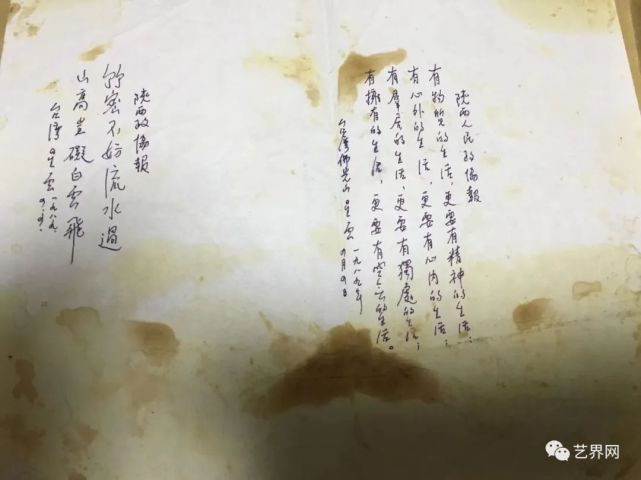 陝西人民政協報
有物質的生活，更要有精神的生活；
有心外的生活，更要有心內的生活；
有羣居的生活，更要有獨處的生活；
有擁有的生活，更要有空無的生活。
台灣佛光山星雲 一九八九年
九月九日
陝西政協報
竹密不妨流水過
山高豈礙白雲飛
台灣星雲 一九八九.
九.九.
艺界网